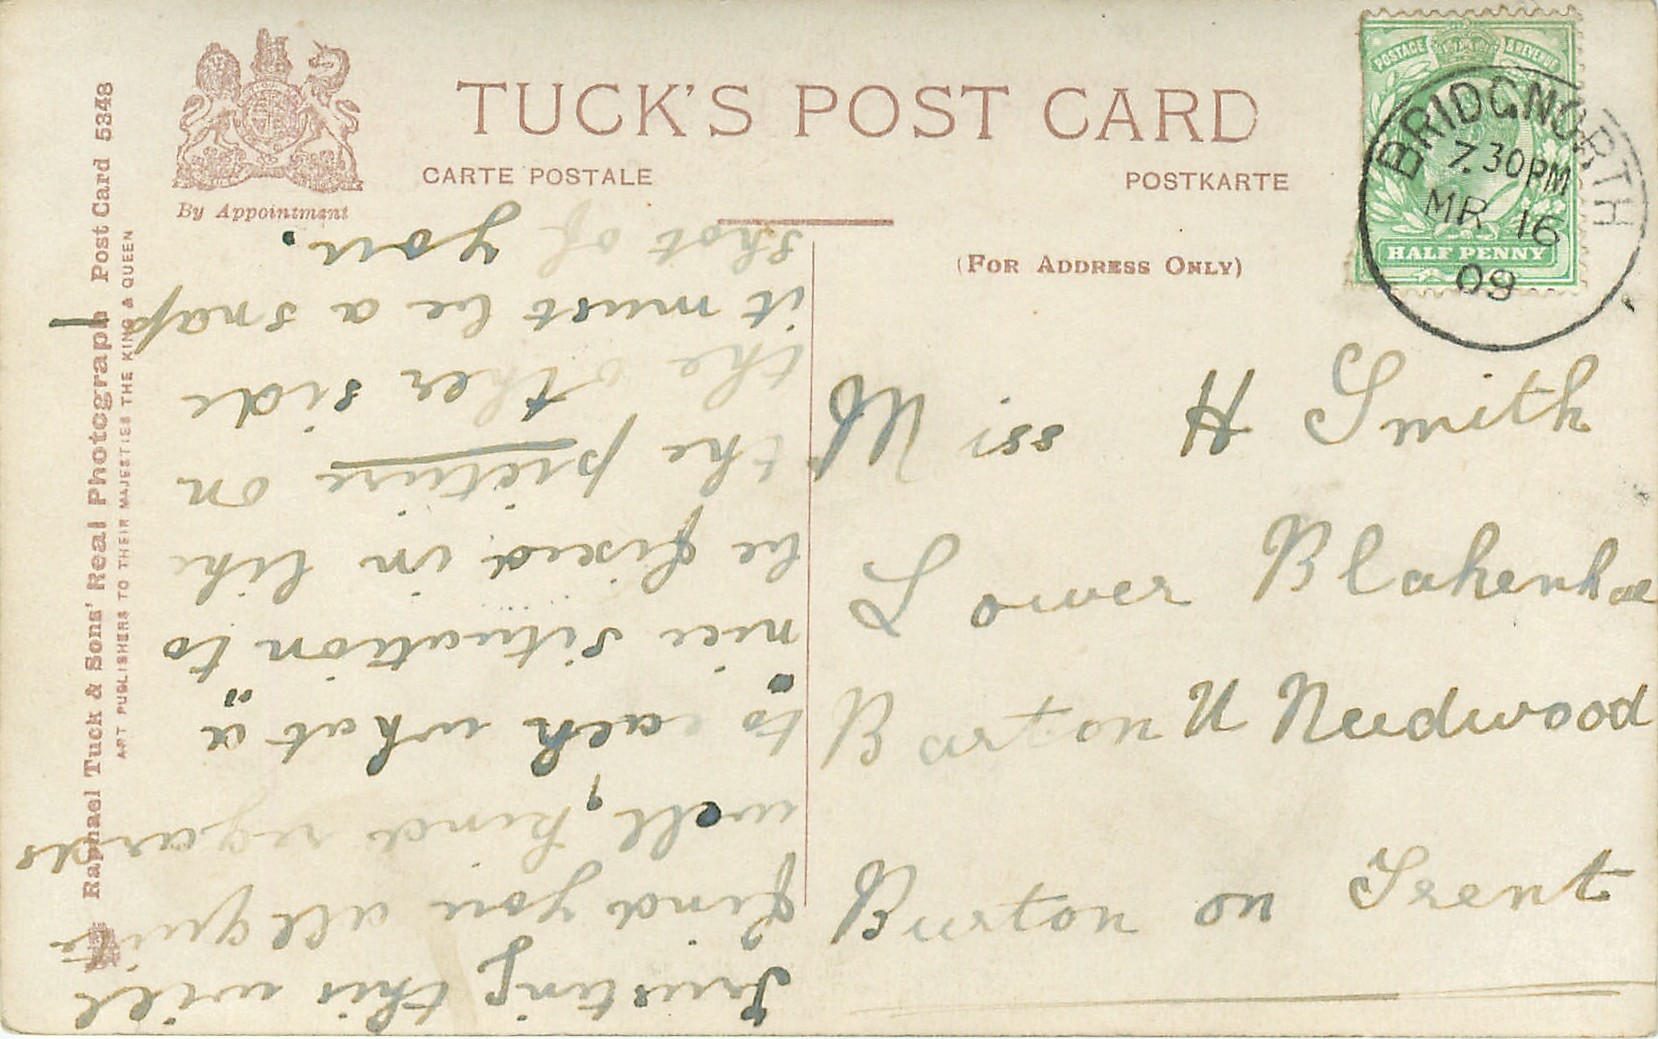 TUCK'S POST CARD
CARTE POSTALE
POSTKARTE
By Appointment
(FOR ADDRESS ONLY)
POSTAGE & REVENUE
HALF PENNY
BRIDGNORTH
7.30PM
MR 16
09
Raphael Tuck & Sons' Real Photograph Post Card 5348
ART PUBLISHERS TO THEIR MAJESTIES THE KING & QUEEN
Trusting this will
find you all quite
well, kind regards
to each what a "
" nice situation to
be fixed in like
the picture on
the other side
it must be a snap
shot of you.
Miss H Smith
Lower Blakenhae
Barton U Needwood
Burton on Trent